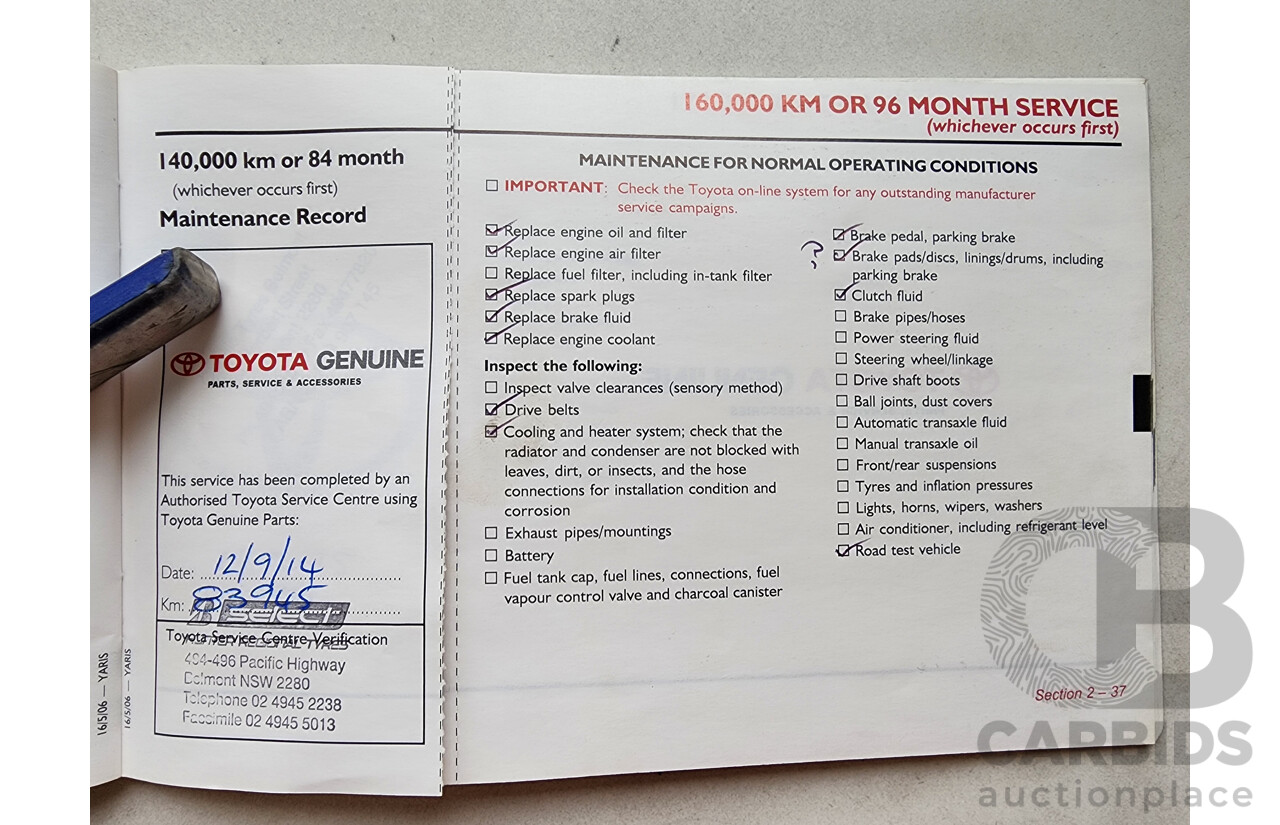 140,000 km or 84 month
(whichever occurs first)
Maintenance Record
TOYOTA GENUINE
PARTS, SERVICE & ACCESSORIES
This service has been completed by an
Authorised Toyota Service Centre using
Toyota Genuine Parts:
Date: 12/9/14
Km: 83945
select
Toyota Service Centre Verification
TYRES
494-496 Pacific Highway
Belmont NSW 2280
Telephone 02 4945 2238
Facsimile 02 4945 5013
16/5/06 — YARIS
16/5/06 — YARIS
160,000 KM OR 96 MONTH SERVICE
(whichever occurs first)
MAINTENANCE FOR NORMAL OPERATING CONDITIONS
IMPORTANT: Check the Toyota on-line system for any outstanding manufacturer
service campaigns.
Replace engine oil and filter
Replace engine air filter
Replace fuel filter, including in-tank filter
Replace spark plugs
Replace brake fluid
Replace engine coolant
Inspect the following:
Inspect valve clearances (sensory method)
Drive belts
Cooling and heater system; check that the
radiator and condenser are not blocked with
leaves, dirt, or insects, and the hose
connections for installation condition and
corrosion
Exhaust pipes/mountings
Battery
Fuel tank cap, fuel lines, connections, fuel
vapour control valve and charcoal canister
Brake pedal, parking brake
? Brake pads/discs, linings/drums, including
parking brake
Clutch fluid
Brake pipes/hoses
Power steering fluid
Steering wheel/linkage
Drive shaft boots
Ball joints, dust covers
Automatic transaxle fluid
Manual transaxle oil
Front/rear suspensions
Tyres and inflation pressures
Lights, horns, wipers, washers
Air conditioner, including refrigerant level
Road test vehicle
Section 2 – 37
CB
CARBIDS
auctionplace